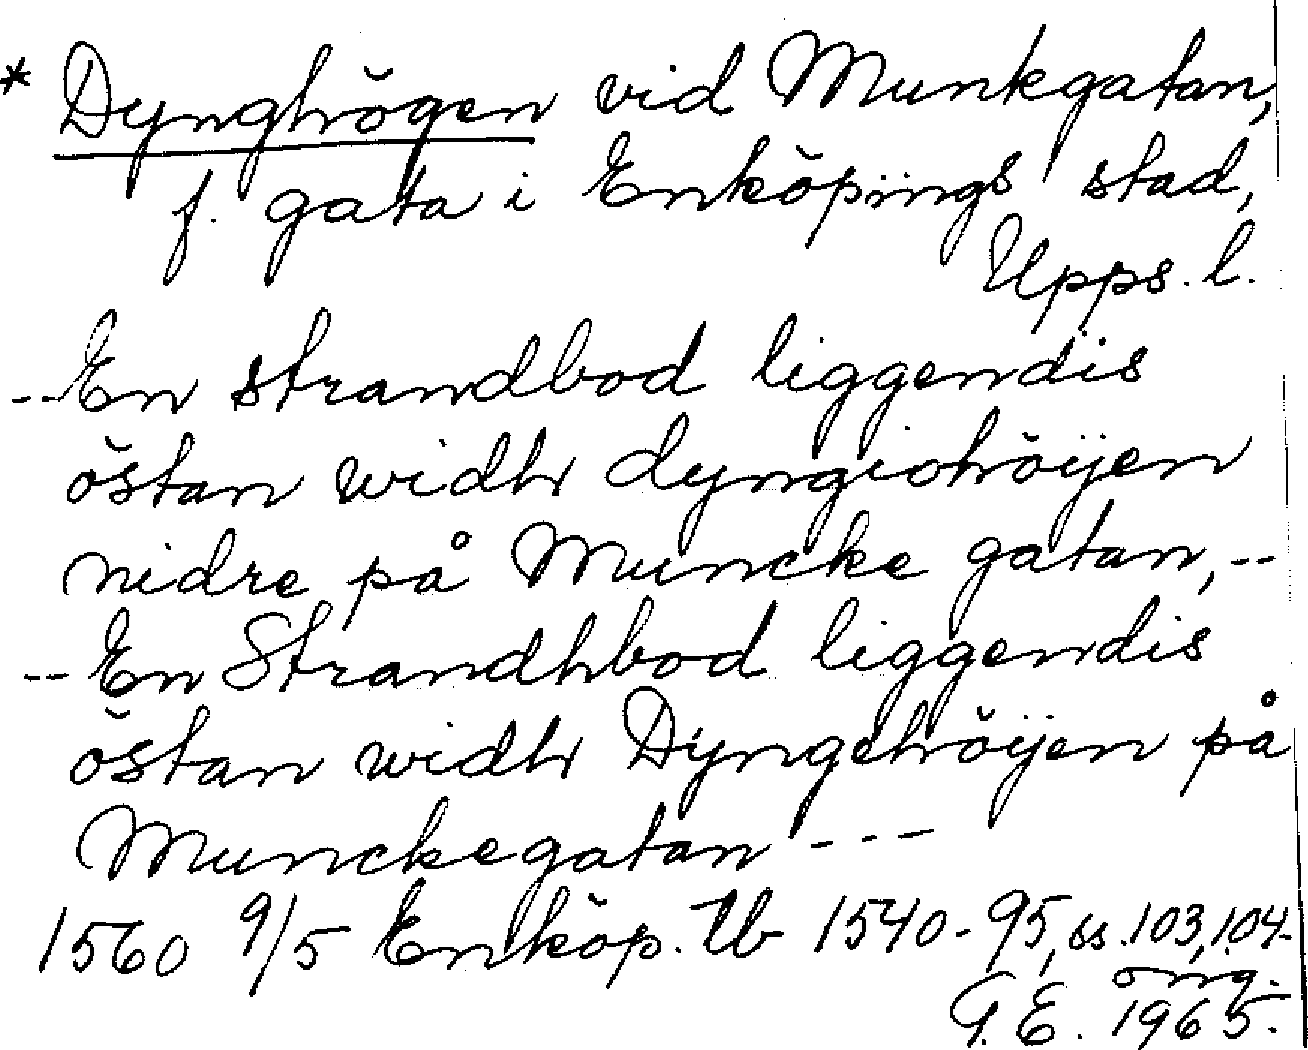 * Dynghögen vid Munkgatan,
f. gata i Enköpings stad,
Upps. l.
-- En strandbod liggendis
östan widh dyngiohöijen
nidre på Muncke gatan, --
-- En Strandhbod liggendis
östan widh Dyngehöijen på
Munckegatan ---
1560 9/5 Enköp. tb 1540-95, ss. 103, 104.
omg.
G. E. 1965.